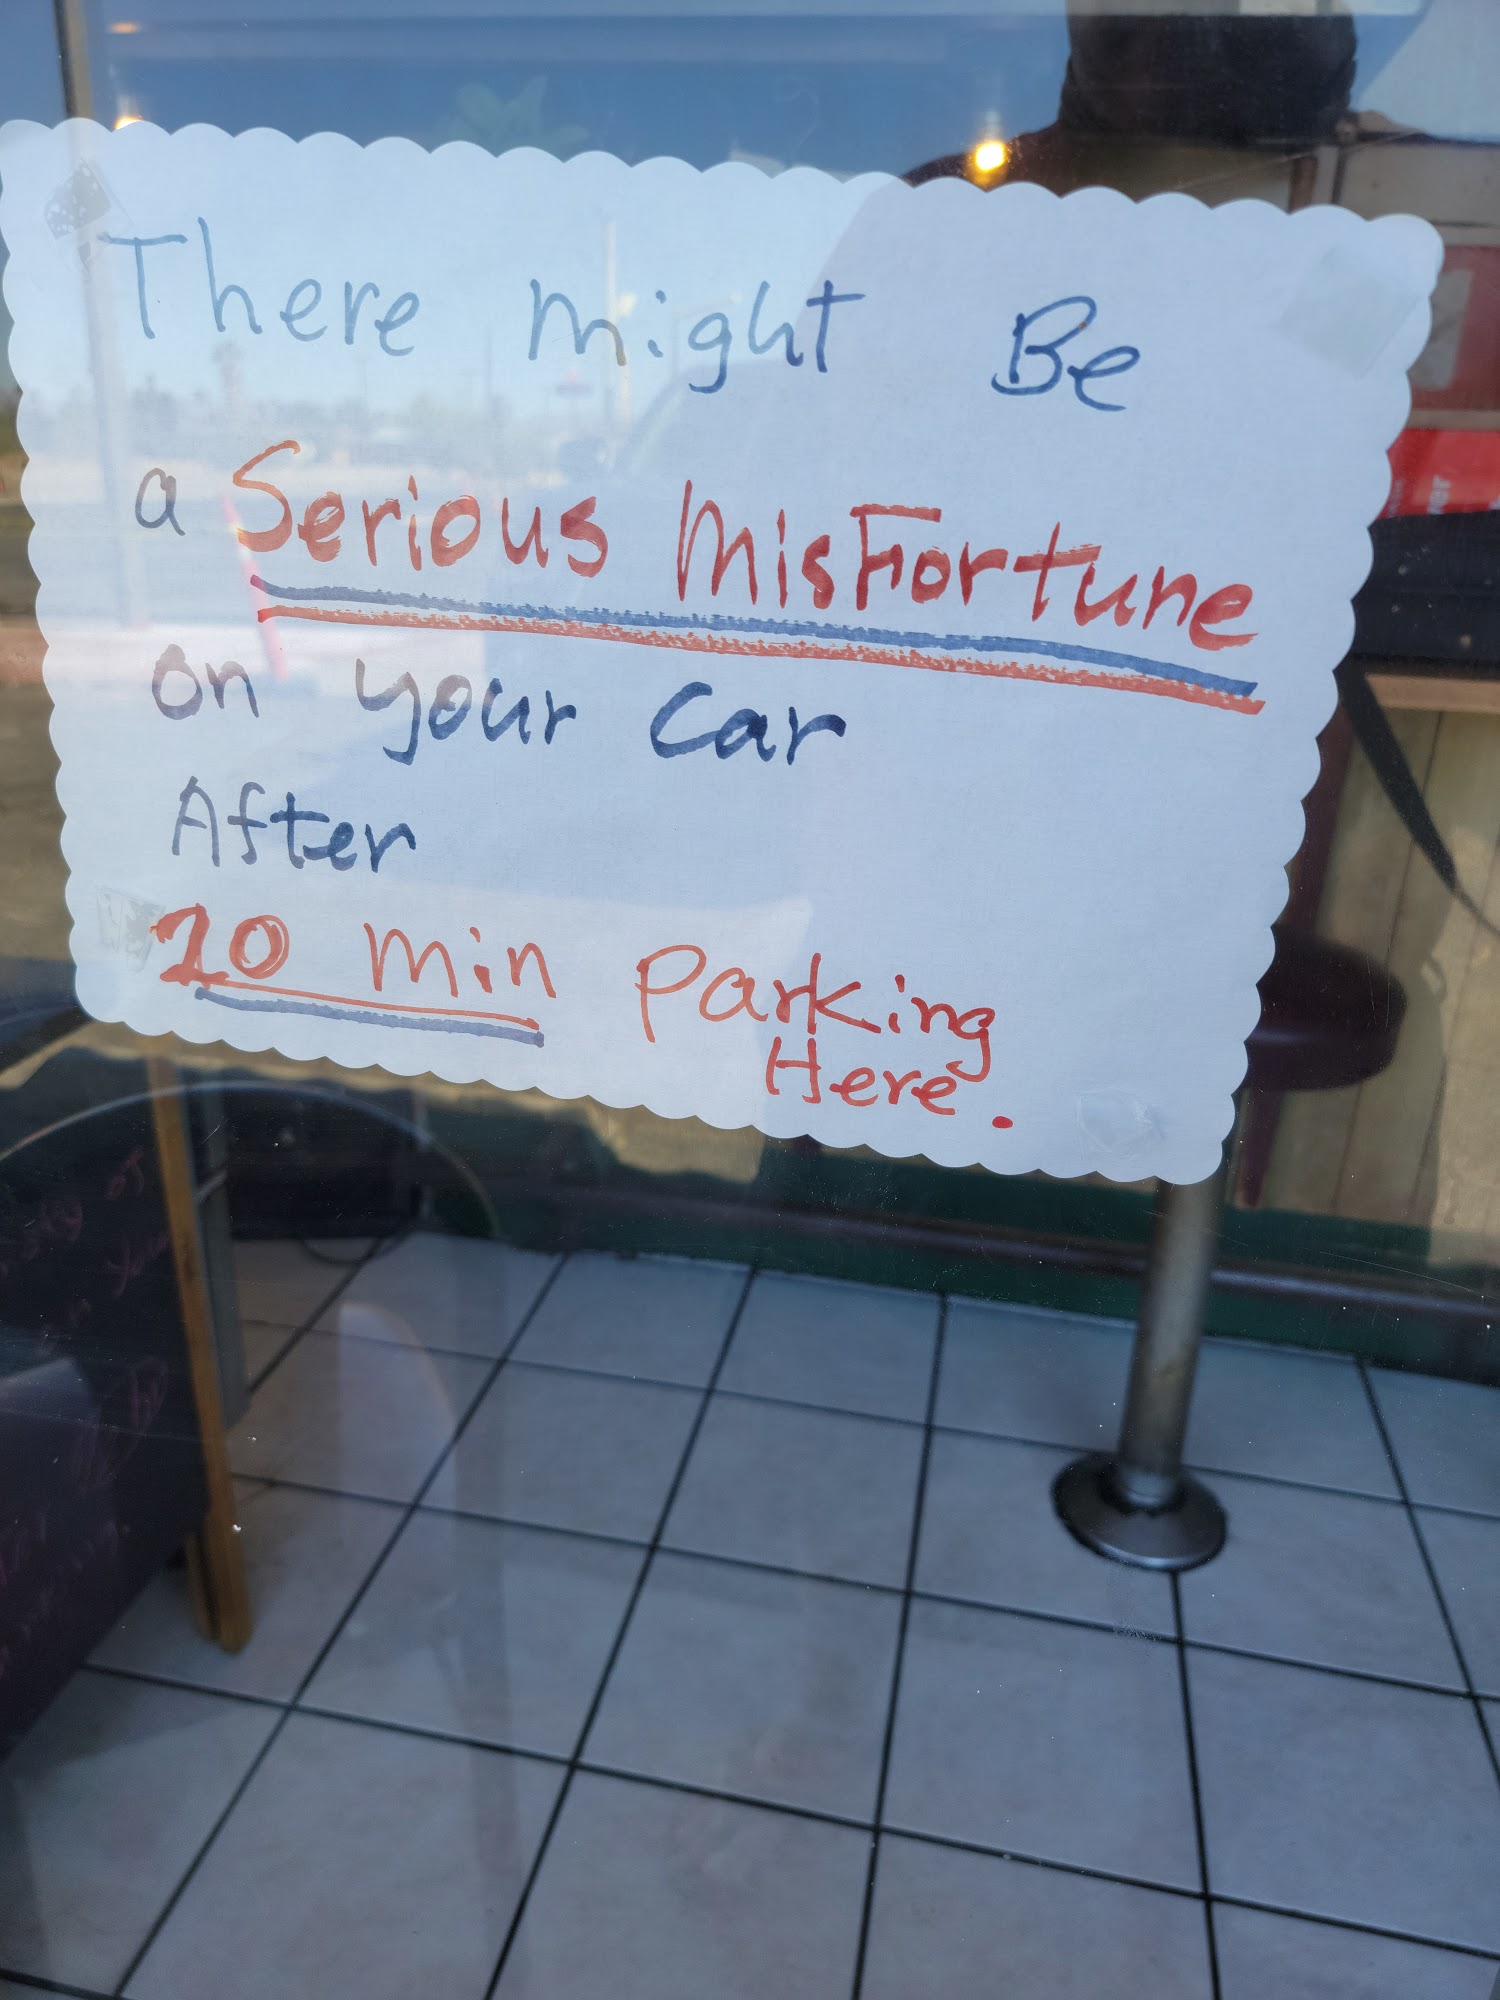 There might Be
a Serious MisFortune
on your car
After
20 min Parking
Here.